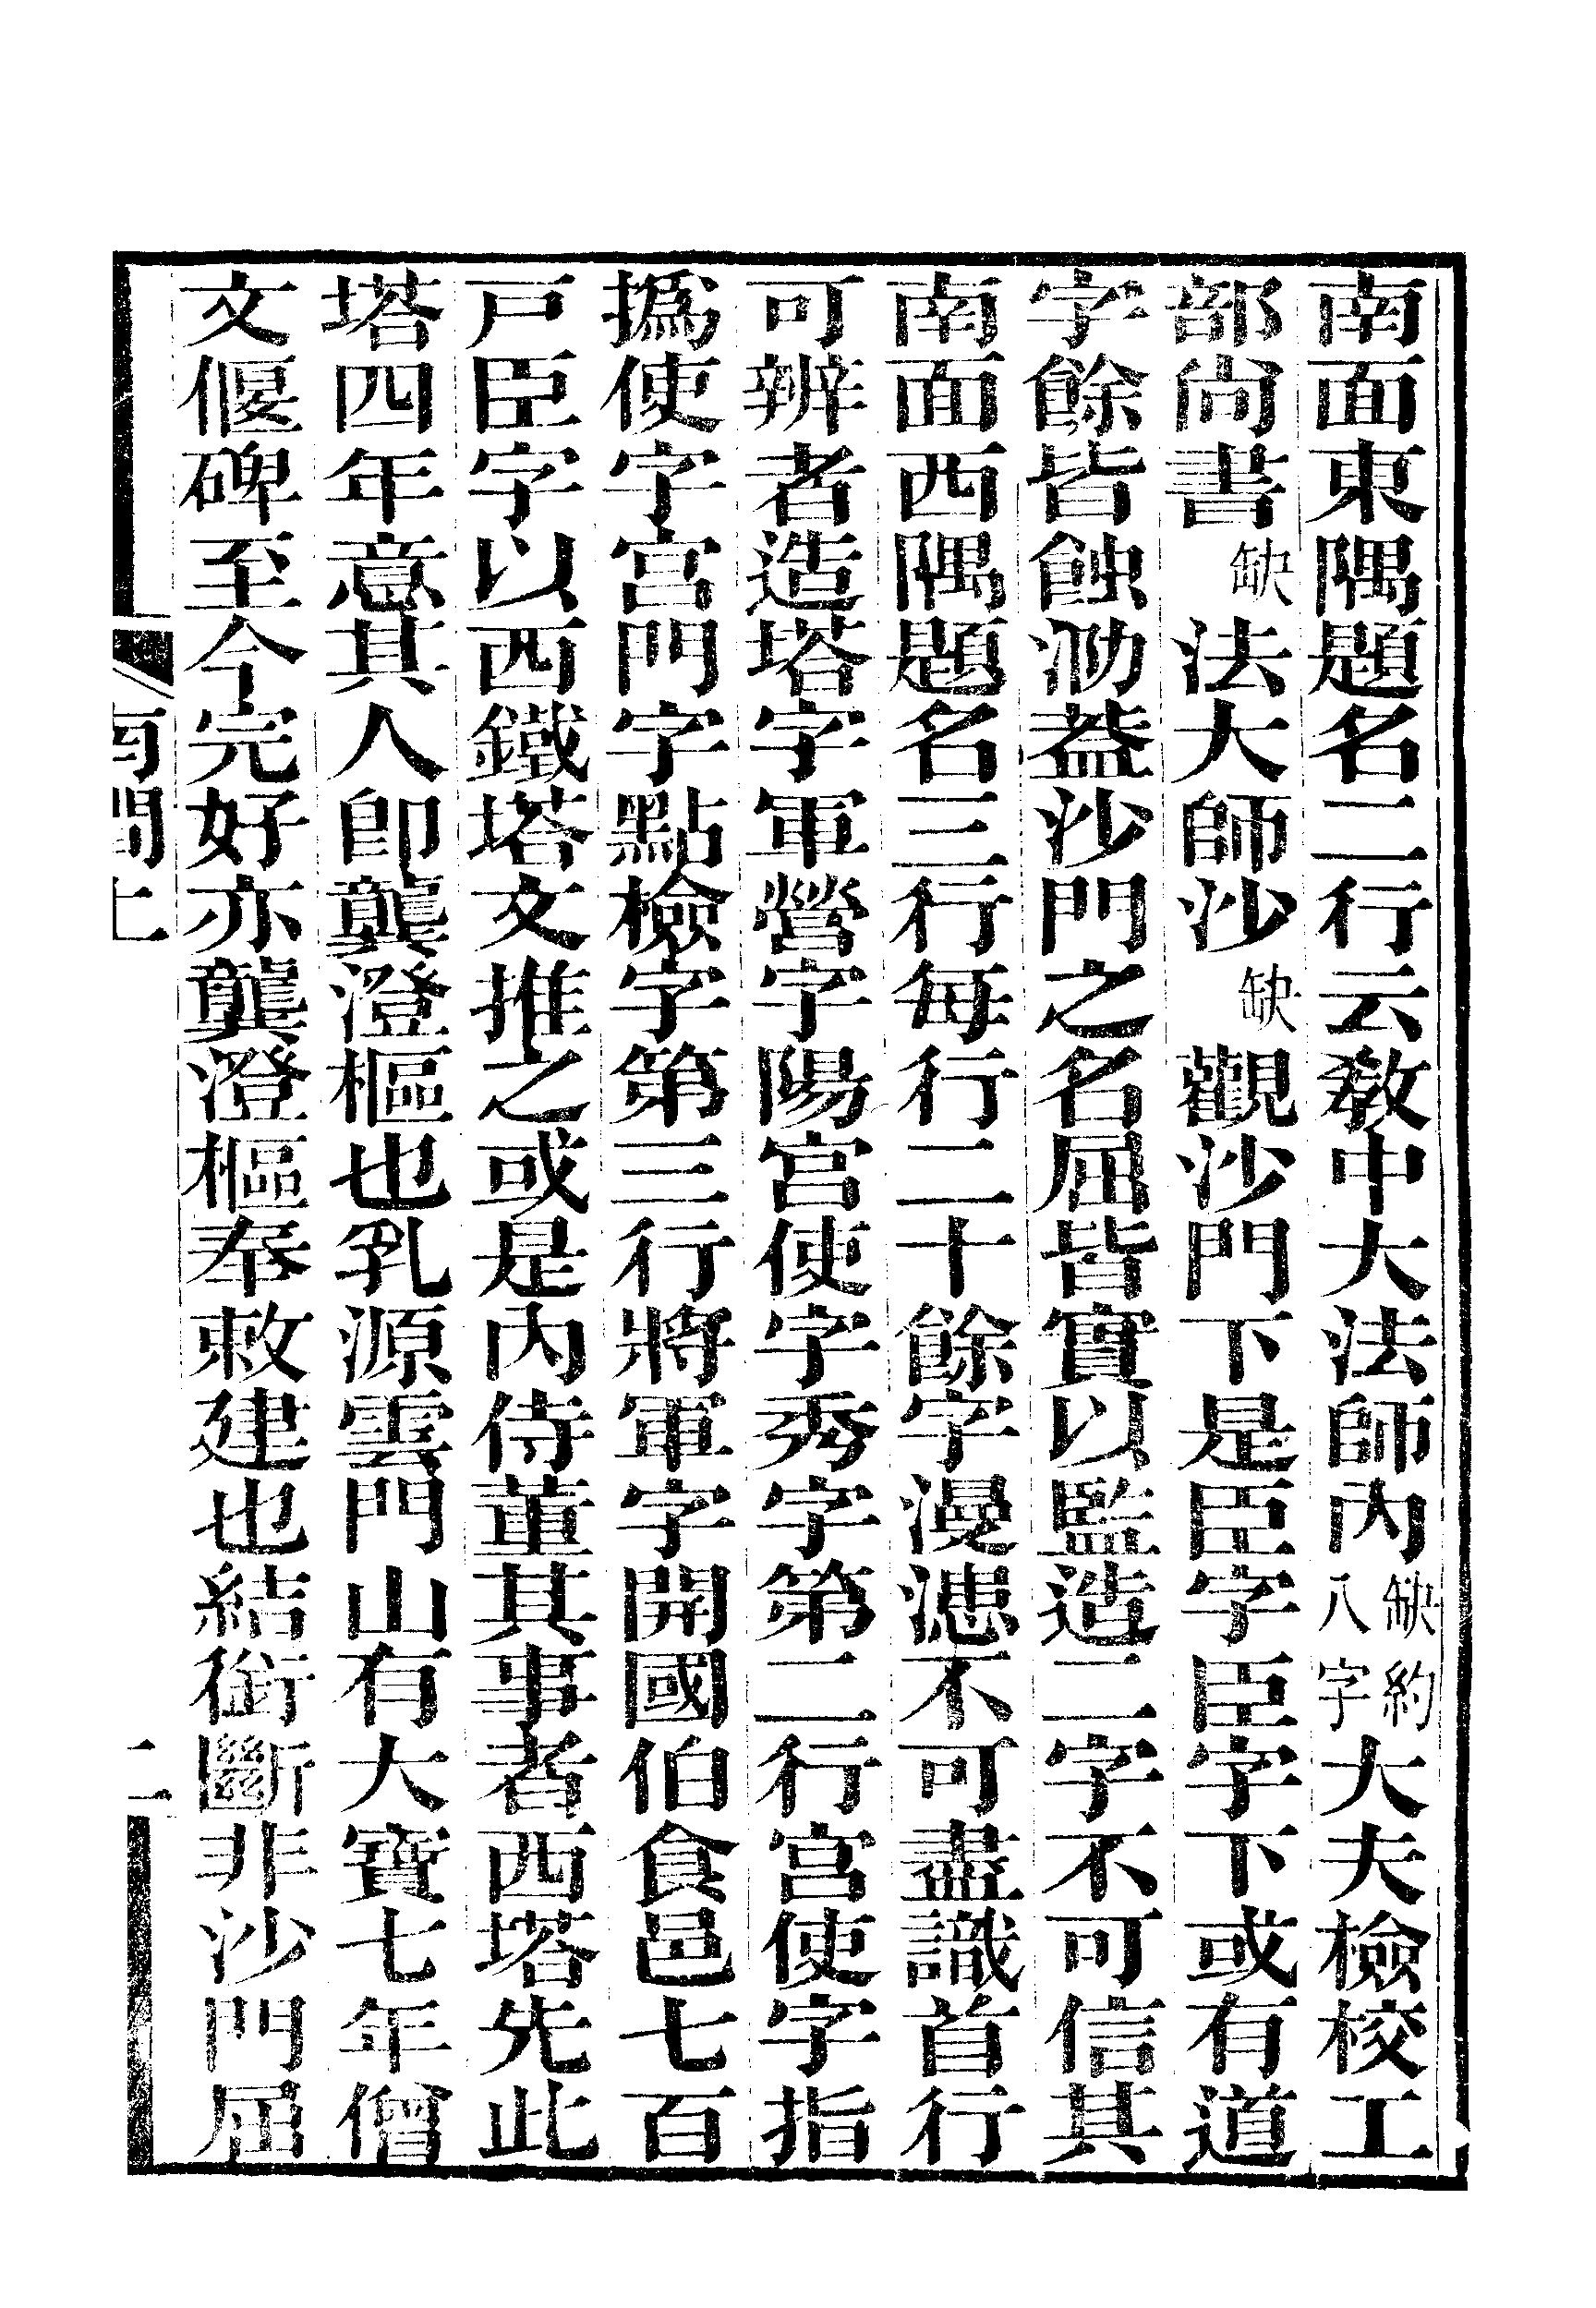 南面東隅題名二行云敎中大法師內缺約八字大夫檢校工
部尙書缺法大師沙缺觀沙門下是臣字臣字下或有道
字餘皆蝕泐葢沙門之名屈皆實以監造二字不可信其
南面西隅題名三行每行二十餘字漫漶不可盡識首行
可辨者造塔字軍營字陽宮使字秀字第二行宮使字指
撝使字宮門字點檢字第三行將軍字開國伯食邑七百
戸臣字以西鐵塔文推之或是內侍董其事者西塔先此
塔四年意其人卽龔澄樞也乳源雲門山有大寶七年僧
文偃碑至今完好亦龔澄樞奉敕建也結銜斷非沙門屈
二